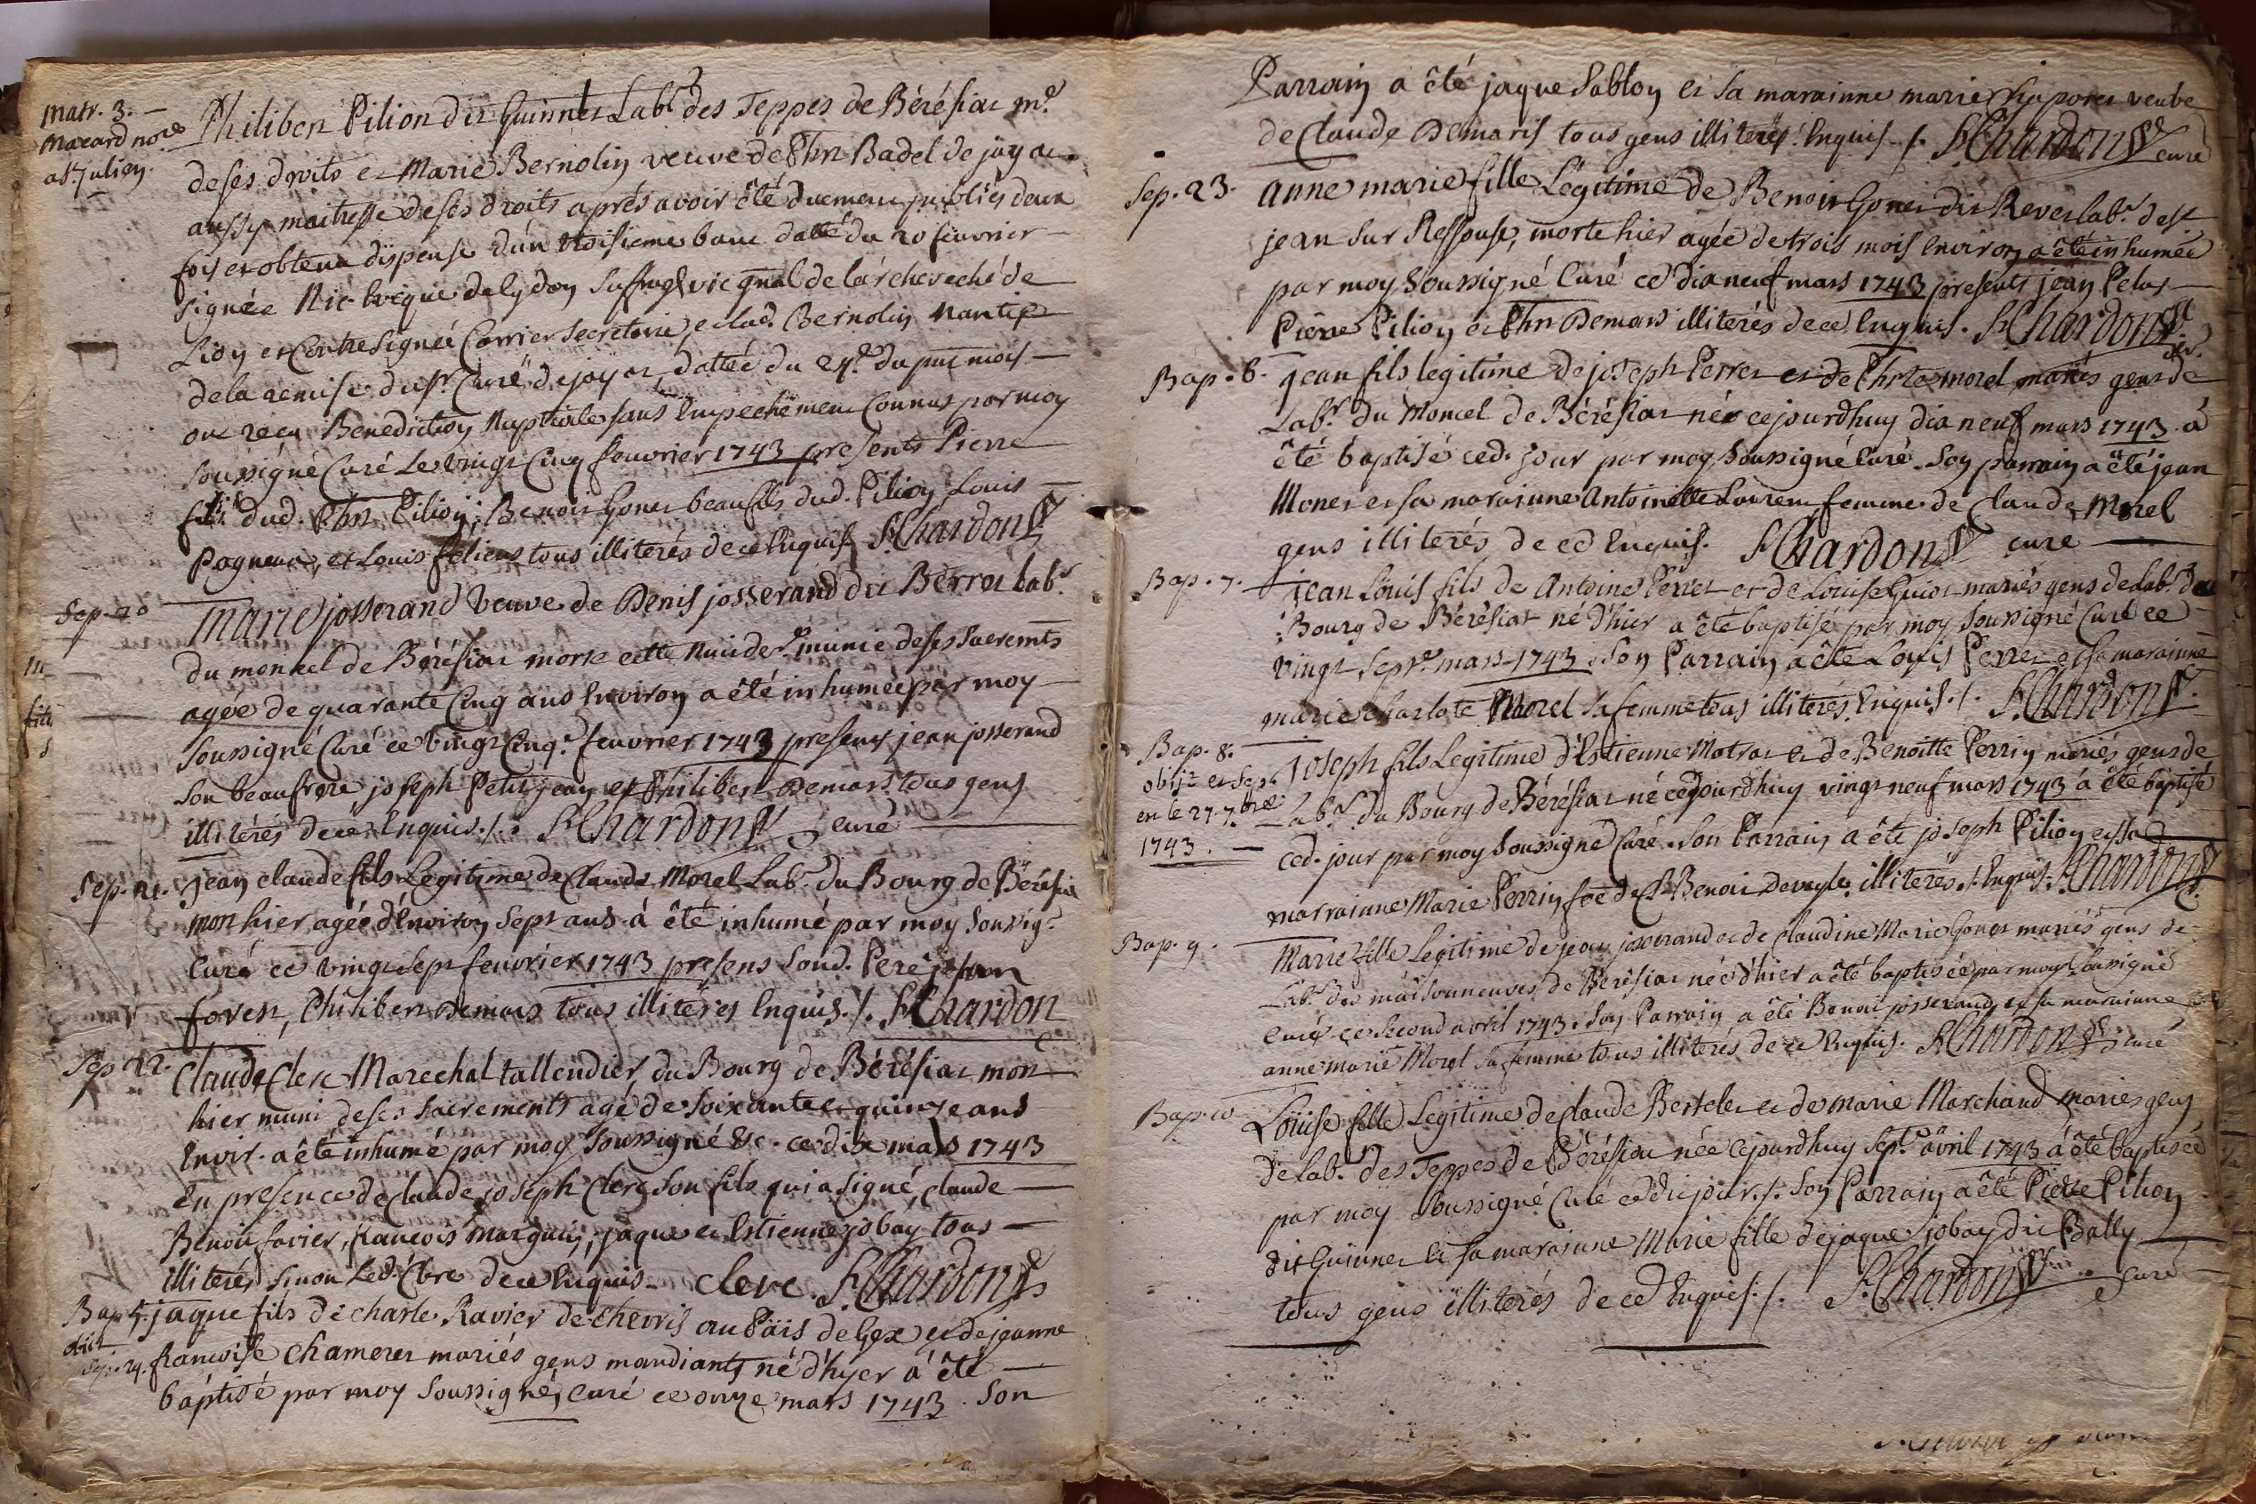 Matr. 3.
Macard no.re
a St Julien.
Philibert Pilion dit Guinnet Lab.r des Teppes de Béréfiat m.e
de ses droits et Marie Bernolin veuve de Phrt Badel de jayat
aussy maitresse de ses droits aprés avoir êté duement publiés deux
fois et obtenu dispense d'un troisieme banc datté du 20 feuvrier
signée Nic Evêque de Sydon Suffrag. vic gnal de lárchevéché de
Lion et Contresignée Carrier Secretaire, et lad. Bernolin Nantie
de la remise du Sr. Curé de jayat dattée du 24.e du pnt mois
ont recu Benediction Nuptiale sans Empechement Connus par moy
soussigné Curé Le vingt Cinq feuvrier 1743 presents Pierre
fils dud. Phrt Pilion, Benoit Gonet beaufils dud. Pilion Louis
Pagneux, et Louis féliens tous illiterés de ce Enquis S. Chardon
Sep. 20
Marie josserand Veuve de Denis josserand dit Berrot Lab.r
du moncel de Béréfiat morte cette nuit der.e munie de ses Sacremts
agée de quarante Cinq ans Environ a êté inhumée par moy
soussigné Curé ce vingt Cinq.e feuvrier 1743 presents jean josserand
son beaufrere, joseph Petitjean et Philibert Demars tous gens
illiterés de ce Enquis ./. S. Chardon curé
Sep. 21.
jean claude fils Legitime de Claude Morel Lab.r du Bourg de Béréfiat
mort hier agée d'Environ Sept ans á êté inhumé par moy Soussig.é
Curé ce vingt sept feuvrier 1743 presens Sond. Pere jean
forest, Philibert Demars tous illiterés Enquis ./. S. Chardon
Sep 22.
Claude Clerc Marechal tallendier du Bourg de Béréfiat mort
hier muni de ses Sacrements agé de soixante et quinze ans
Envir. a êté inhumé par moy Soussigné &c. ce dix mars 1743
En presence de Claude joseph Clerc Son fils qui a signé, claude
Benoit favier, françois Marguin, jaque et Estienne jobay tous
illiterés sinon Led. Clerc de ce Enquis. Clerc S. Chardon
Bap 5.
obiit
Sep. 24.
jaque fils de charle Ravier de chevris au Païs de Gex et de jeanne
francoise Chameret mariés gens mandiants né d'hyer á êté
baptisé par moy Soussigné, Curé ce onze mars 1743. Son
Parrain a êté jaque Sablon et sa marainne marie Chaponet veuve
de Claude Demaris tous gens illiterés Enquis ./. S. Chardon curé
Sep. 23.
anne marie fille Légitime de Benoit Gonet dit Revet lab.r de St
jean sur Reffouse, morte hier agée de trois mois Environ a êté inhumée
par moy Soussigné Curé ce dix neuf mars 1743 presents jean Pelus
Pierre Pilion et Phrt Demars illiterés de ce Enquis. S. Chardon
Bap. 6.
jean fils legitime de joseph Perret et de Phrte morel mariés gens de
Lab.r du Moncel de Béréfiat né cejourdhuy dix neuf mars 1743 á
êté baptisé ced. jour par moy Soussigné Curé. Son parrain a êté jean
Monet et sa marainne Antoinette Laurent femme de Claude Morel
gens illiterés de ce Enquis. S. Chardon curé
Bap. 7.
jean Louis fils de Antoine Perret et de Louise Guiot mariés gens de Lab.r du
Bourg de Béréfiat né d'hier a êté baptisé par moy Soussigné Curé ce
vingt Sept.e mars 1743. Son Parrain a êté Louis Perret et sa marainne
marie charlote Morel sa femme tous illiterés Enquis ./. S. Chardon
Bap. 8.
obiit et Sep.
en le 27. 7.bre
1743.
Joseph fils Legitime d'Estienne Motrat et de Benoitte Perrin mariés gens de
Lab.r du Bourg de Béréfiat né cejourdhuy vingt neuf mars 1743 á êté baptisé
ced. jour par moy Soussigné Curé. Son Parrain, a êté joseph Pilion et sa
marrainne Marie Perrin fce de Benoit Deveyle illiterés Enquis. S. Chardon
Bap. 9.
Marie fille Legitime de jean josserand et de Claudine Marie Gonet mariés gens de
Lab.r des maisonneuves de Béréfiat née d'hier a êté baptisée par moy Soussigné
Curé ce Second avril 1743. Son Parrain a êté Benoit josserand et sa marainne
anne marie Morel sa femme tous illiterés de ce Enquis. S. Chardon curé
Bap. 10
Loüise fille Legitime de Claude Bertelet et de marie Marchand mariés gens
de Lab.r des Teppes de Béréfiat née cejourdhuy Sept.e avril 1743 á êté baptisée
par moy Soussigné Curé ce dit jour ./. Son Parrain a êté Pierre Pilion
dit Guinnet et sa marainne Marie fille de jaque jobay dit Bally
tous gens illiterés de ce Enquis ./. S. Chardon Curé